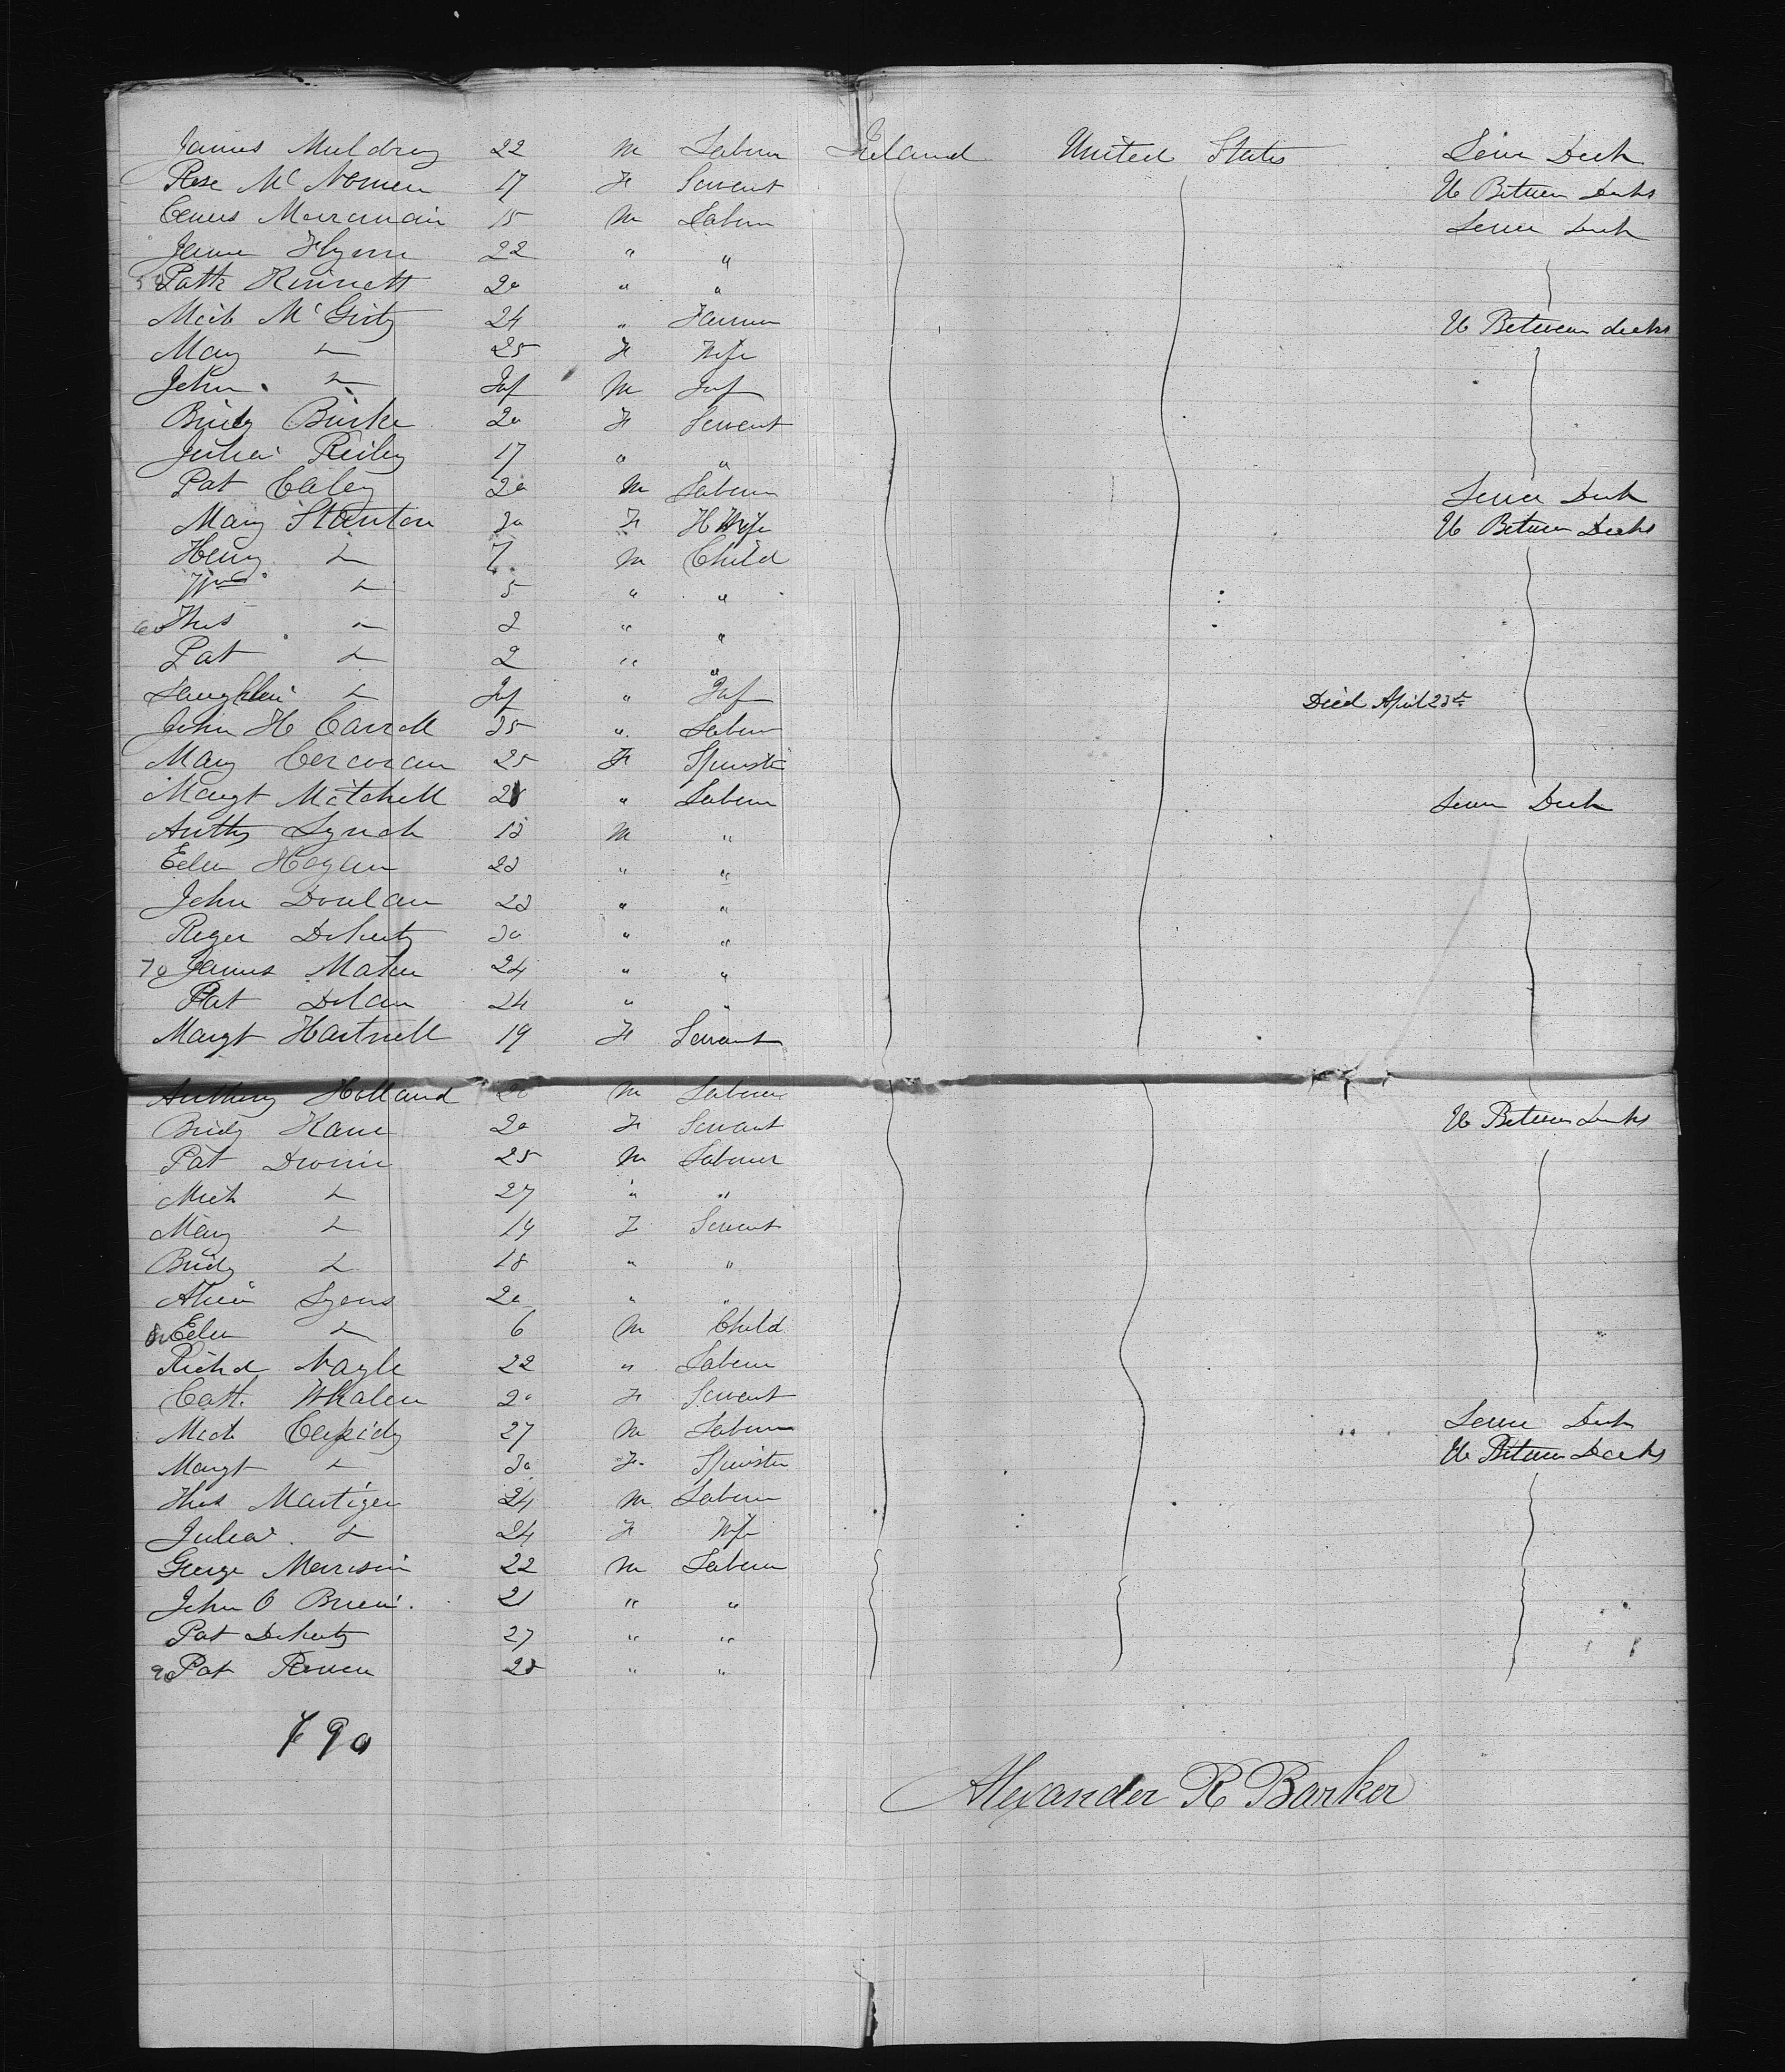 James Muldrey 22 M Labour Ireland United States Lower Deck
Rose Mc 17 F Servant U Between Decks
15 M Labour Lower Deck
James Flynn 22 " "
Pattk Kinnett 20 " "
Mich McGinty 24 " Farmer U Between decks
Mary " 25 F Wife
John " Inf M Inf
Bridg Burke 20 F Servant
Julia Reiley 17 " "
Pat Caley 20 M Labour Lower Deck
Mary Stanton 30 F H Wife U Between Decks
Henry " 7 M Child
Wm " 5 " "
60 Thos " 2 " "
Pat " 2 " "
Laughlin " Inf " Inf Died April 23rd
John H Carroll 35 " Labour
Mary Corcoran 25 F Spinster
Margt Mitchell " Labour Lower Deck
Anthy Lynch 13 M "
Ellen Hogan 23 " "
John Donlan 23 " "
Roger Doherty 30 " "
70 James Maher 24 " "
Pat Dolan 24 " "
Margt Hartnell 19 F Servant
Anthony Holland M Labour
Bridg Kane 20 F Servant U Between Decks
Pat 25 M Labour
Mich " 27 " "
Mary " 19 F Servant
Bridg " 18 " "
Alice Lyons 20 " "
80 Ellen " 6 M Child
Richd Nagle 22 " Labour
Cath Whalen 20 F Servant
Mich Casidy 27 M Labour Lower Deck
Margt " 30 F Spinster U Between Decks
Thos Martigen 24 M Labour
Julia " 24 F Wife
George Morrison 22 M Labour
John O Brien 21 " "
Pat Doherty 27 " "
90 Pat Rowen 23 " "
790
Alexander R Barker